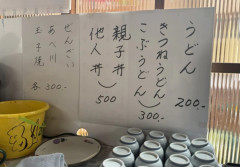 うどん
200.-
きつねうどん
こぶうどん
300.-
親子丼
他人丼
500
ぜんざい
あべ川
玉子焼
各300.-